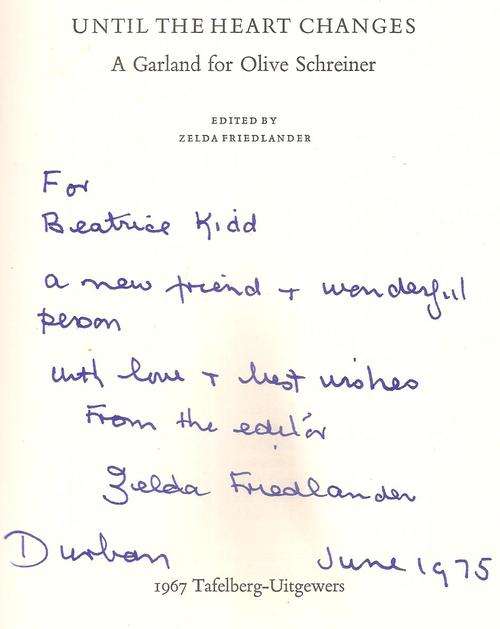 UNTIL THE HEART CHANGES
A Garland for Olive Schreiner
EDITED BY
ZELDA FRIEDLANDER
For
Beatrice Kidd
a new friend + wonderful
person
with love + best wishes
From the editor
Zelda Friedlander
Durban June 1975
1967 Tafelberg-Uitgewers